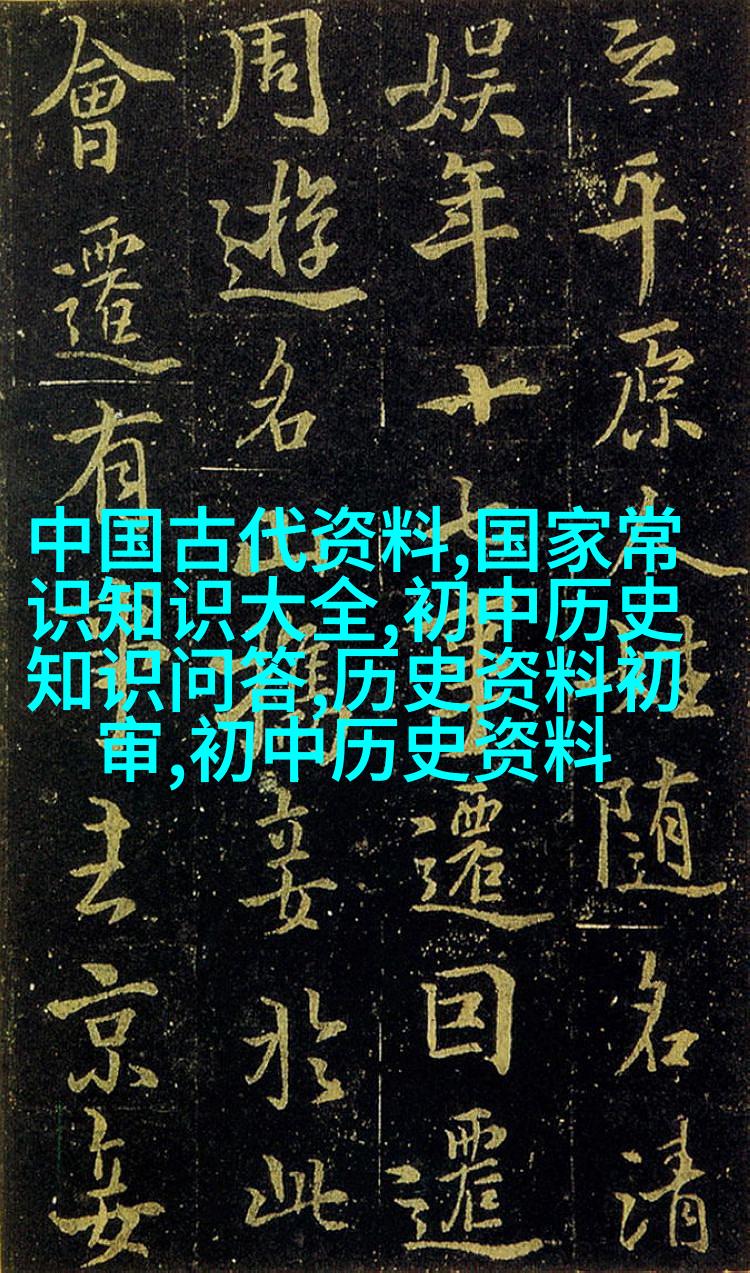 中国古代资料,国家常
识知识大全,初中历史
知识问答,历史资料初
审,初中历史资料
之平原人姓随名清
娱年十七事遷因遷
周遊名山攜妾於此
會遷有事去京妾